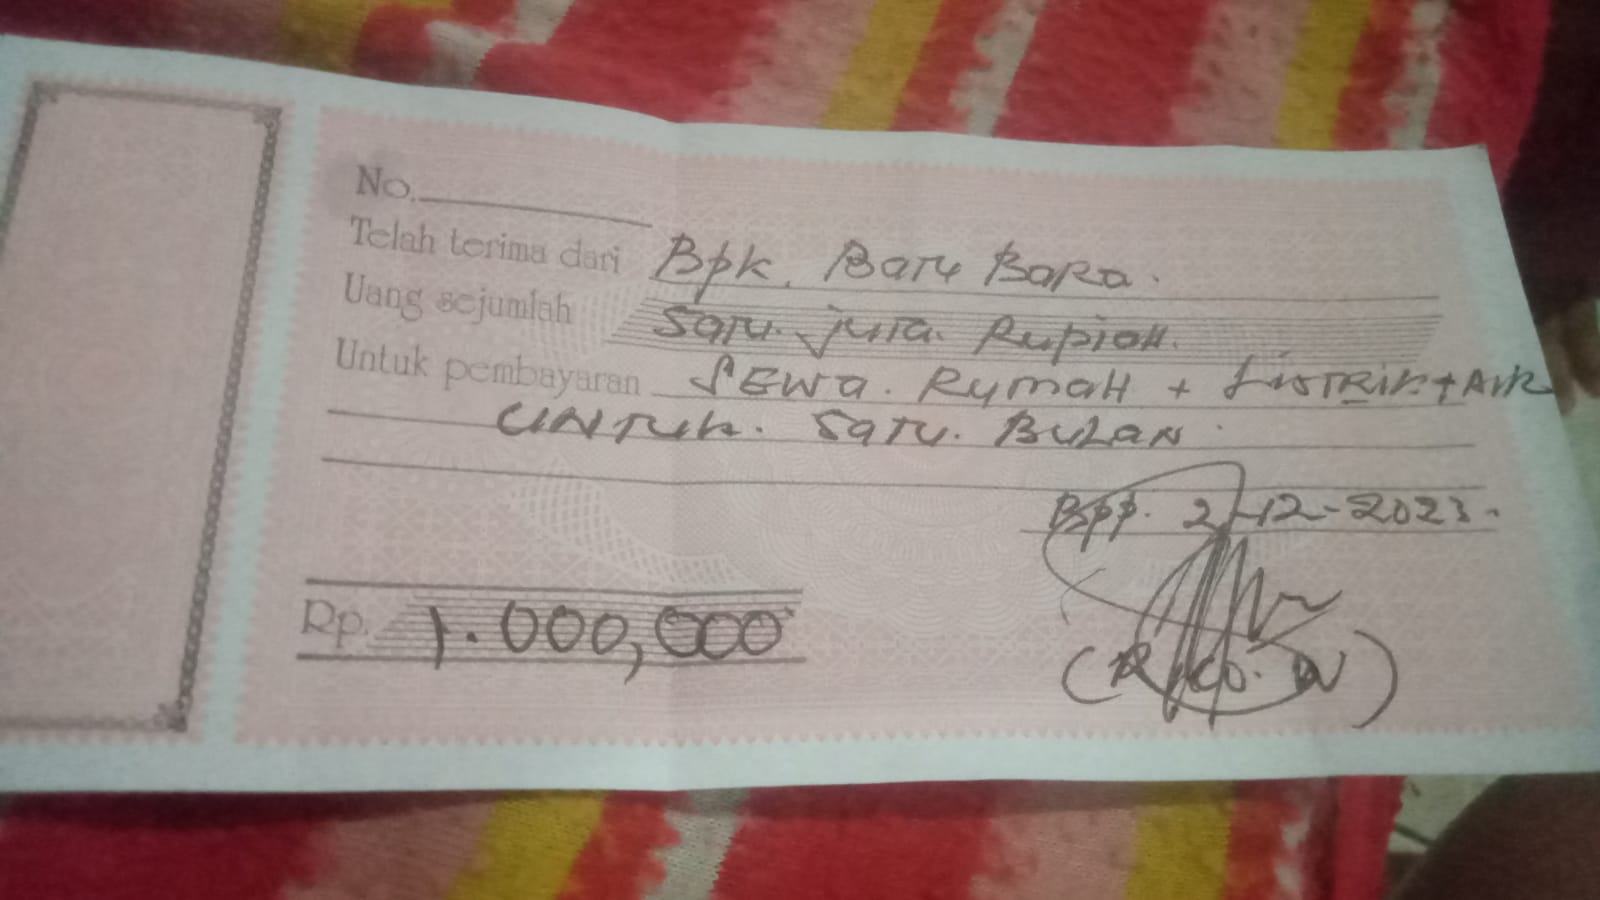 No.
Telah terima dari Bpk. Batu Bara.
Uang sejumlah Satu. juta. Rupiah.
Untuk pembayaran Sewa. Rumah + Listrik + Air
untuk. Satu. Bulan.
Bpp. 2-12-2023.
Rp. 1.000,000